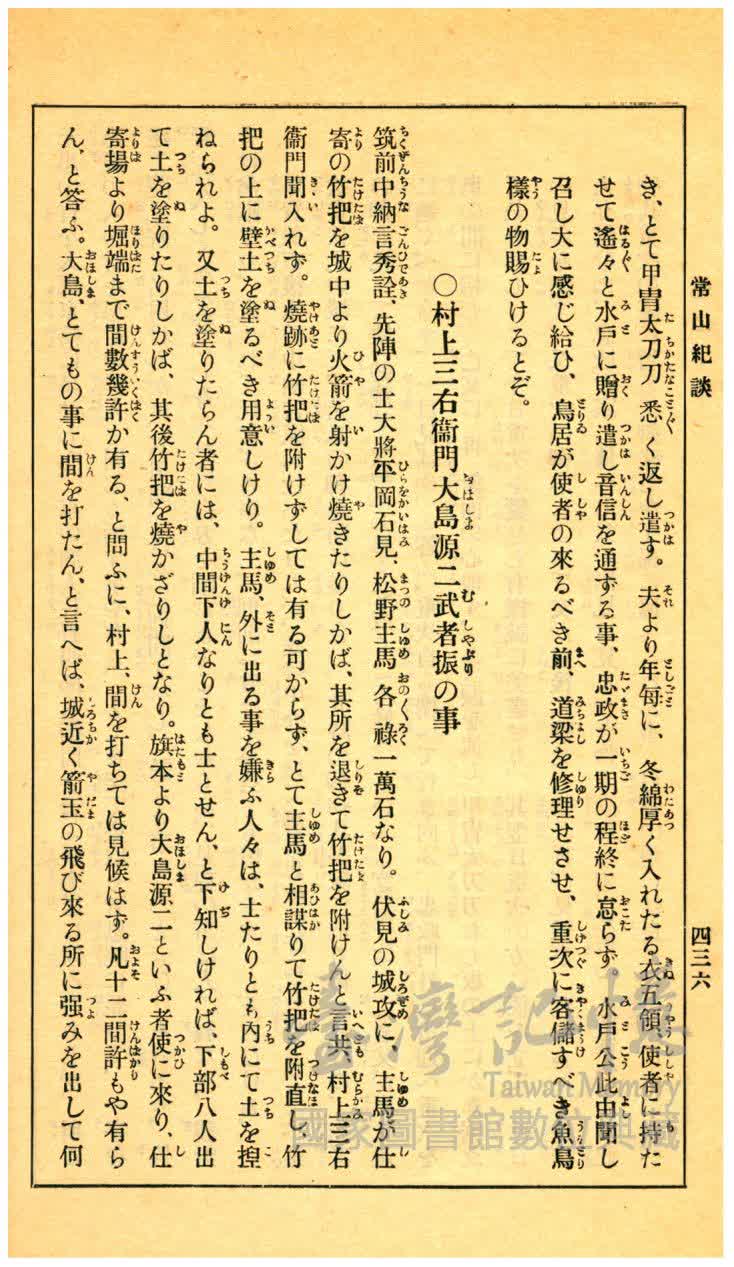 常山紀談
四三六
き、とて甲冑太刀刀悉く返し遣す。夫より年每に、冬綿厚く入れたる衣五領、使者に持た
せて遙々と水戶に贈り遣し音信を通ずる事、忠政が一期の程終に怠らず　水戶公此由聞し
召し大に感じ給ひ、鳥居が使者の來るべき前、道梁を修理せさせ、重次に客儲すべき魚鳥
樣の物賜ひけるとぞ。
〇村上三右衞門大島源二武者振の事
筑前中納言秀詮、先陣の士大將平岡石見、松野主馬各祿一萬石なり。伏見の城攻に、主馬が仕
寄の竹把を城中より火箭を射かけ燒きたりしかば、其所を退きて竹把を附けんと言共、村上三右
衞門聞入れず。燒跡に竹把を附けずしては有る可からず、とて主馬と相謀りて竹把を附直し、竹
把の上に壁土を塗るべき用意しけり。主馬、外に出る事を嫌ふ人々は、士たりとも內にて土を揑
ねられよ。又土を塗りたらん者には、中間下人なりとも士とせん、と下知しければ、下部八人出
て土を塗りたりしかば、其後竹把を燒かざりしとなり。旗本より大島源二といふ者使に來り、仕
寄場より堀端まで間數幾許か有る、と問ふに、村上、間を打ちては見候はず。凡十二間許もや有ら
ん、と答ふ。大島、とてもの事に間を打たん、と言へば、城近く箭玉の飛び來る所に强みを出して何
臺灣記憶
Taiwan Memory
國家圖書館數位典藏